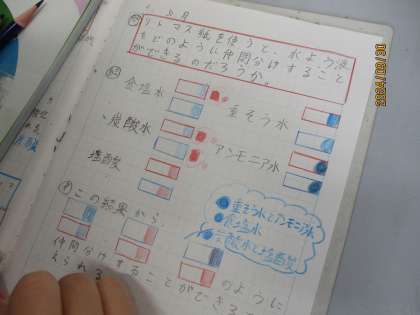 リトマス紙を使うと、水よう液
をどのように仲間分けすること
ができるのだろうか。
食塩水
重そう水
炭酸水
アンモニア水
塩酸
この結果から、
重そう水とアンモニア水
食塩水
酸水と塩酸
のように
仲間分けすることができる
えられる